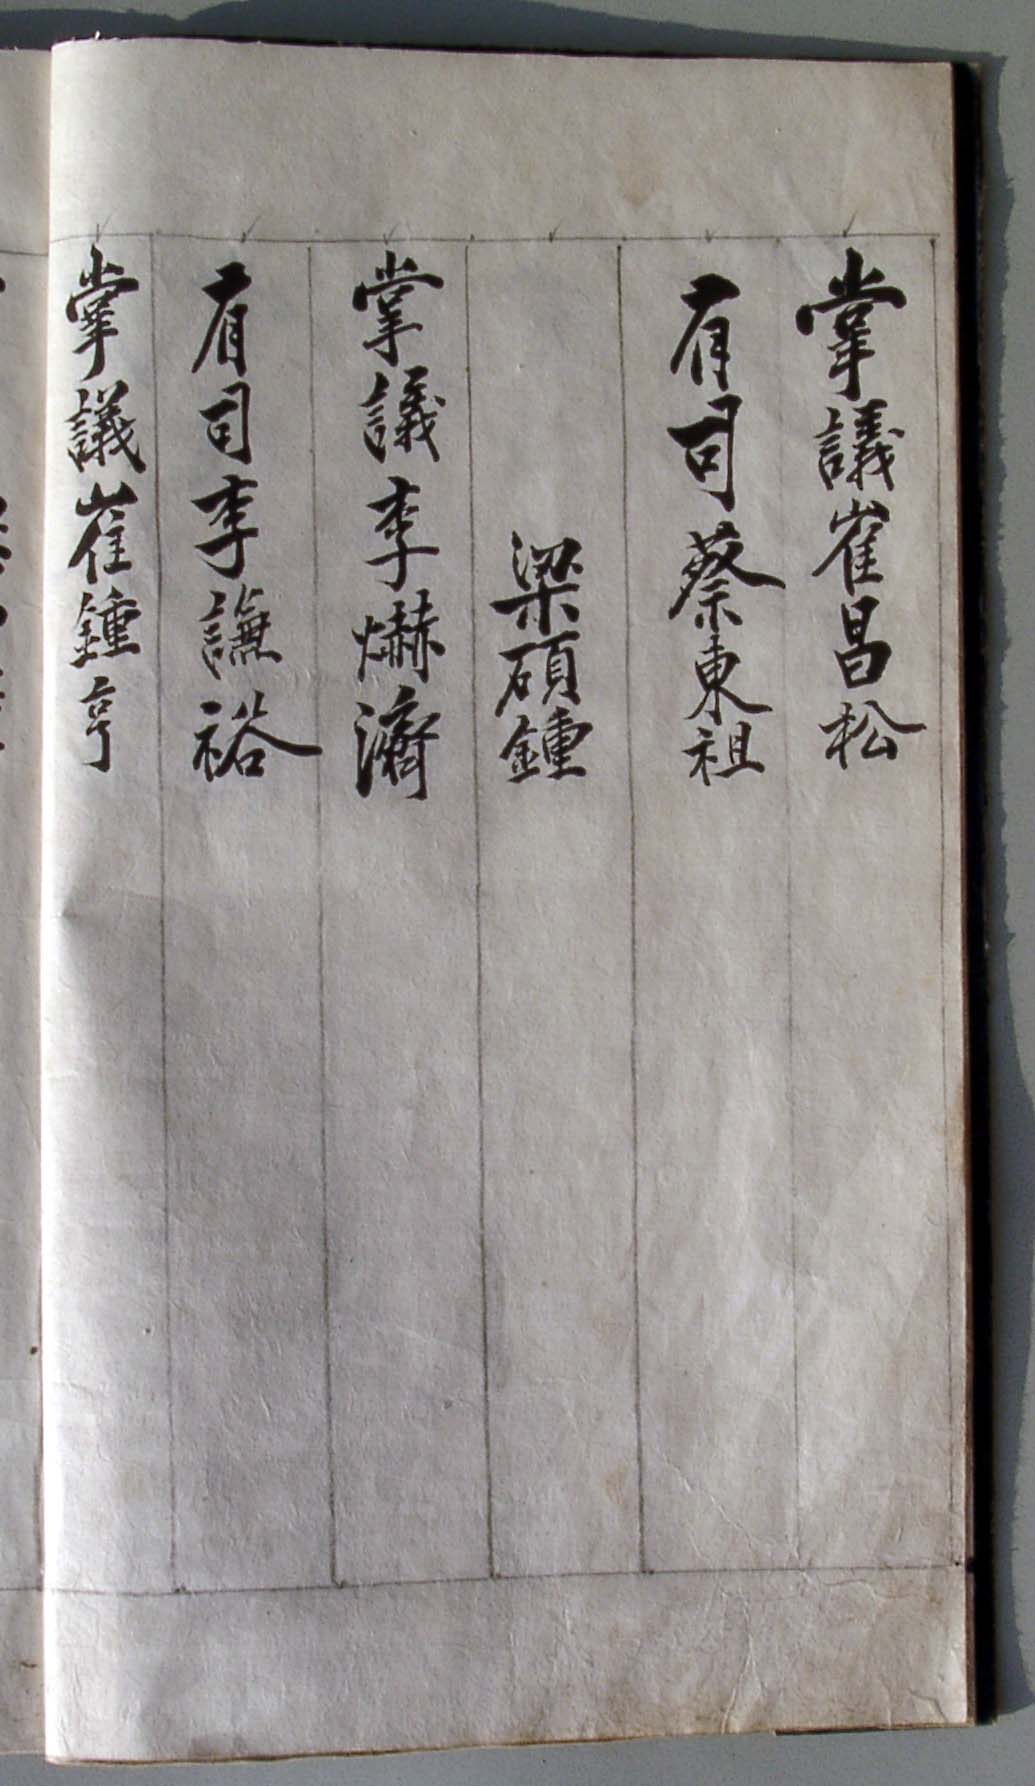 掌議崔昌松
有司蔡東祖
梁碩鍾
掌議李爀濟
有司李譕裕
掌議崔鍾亨